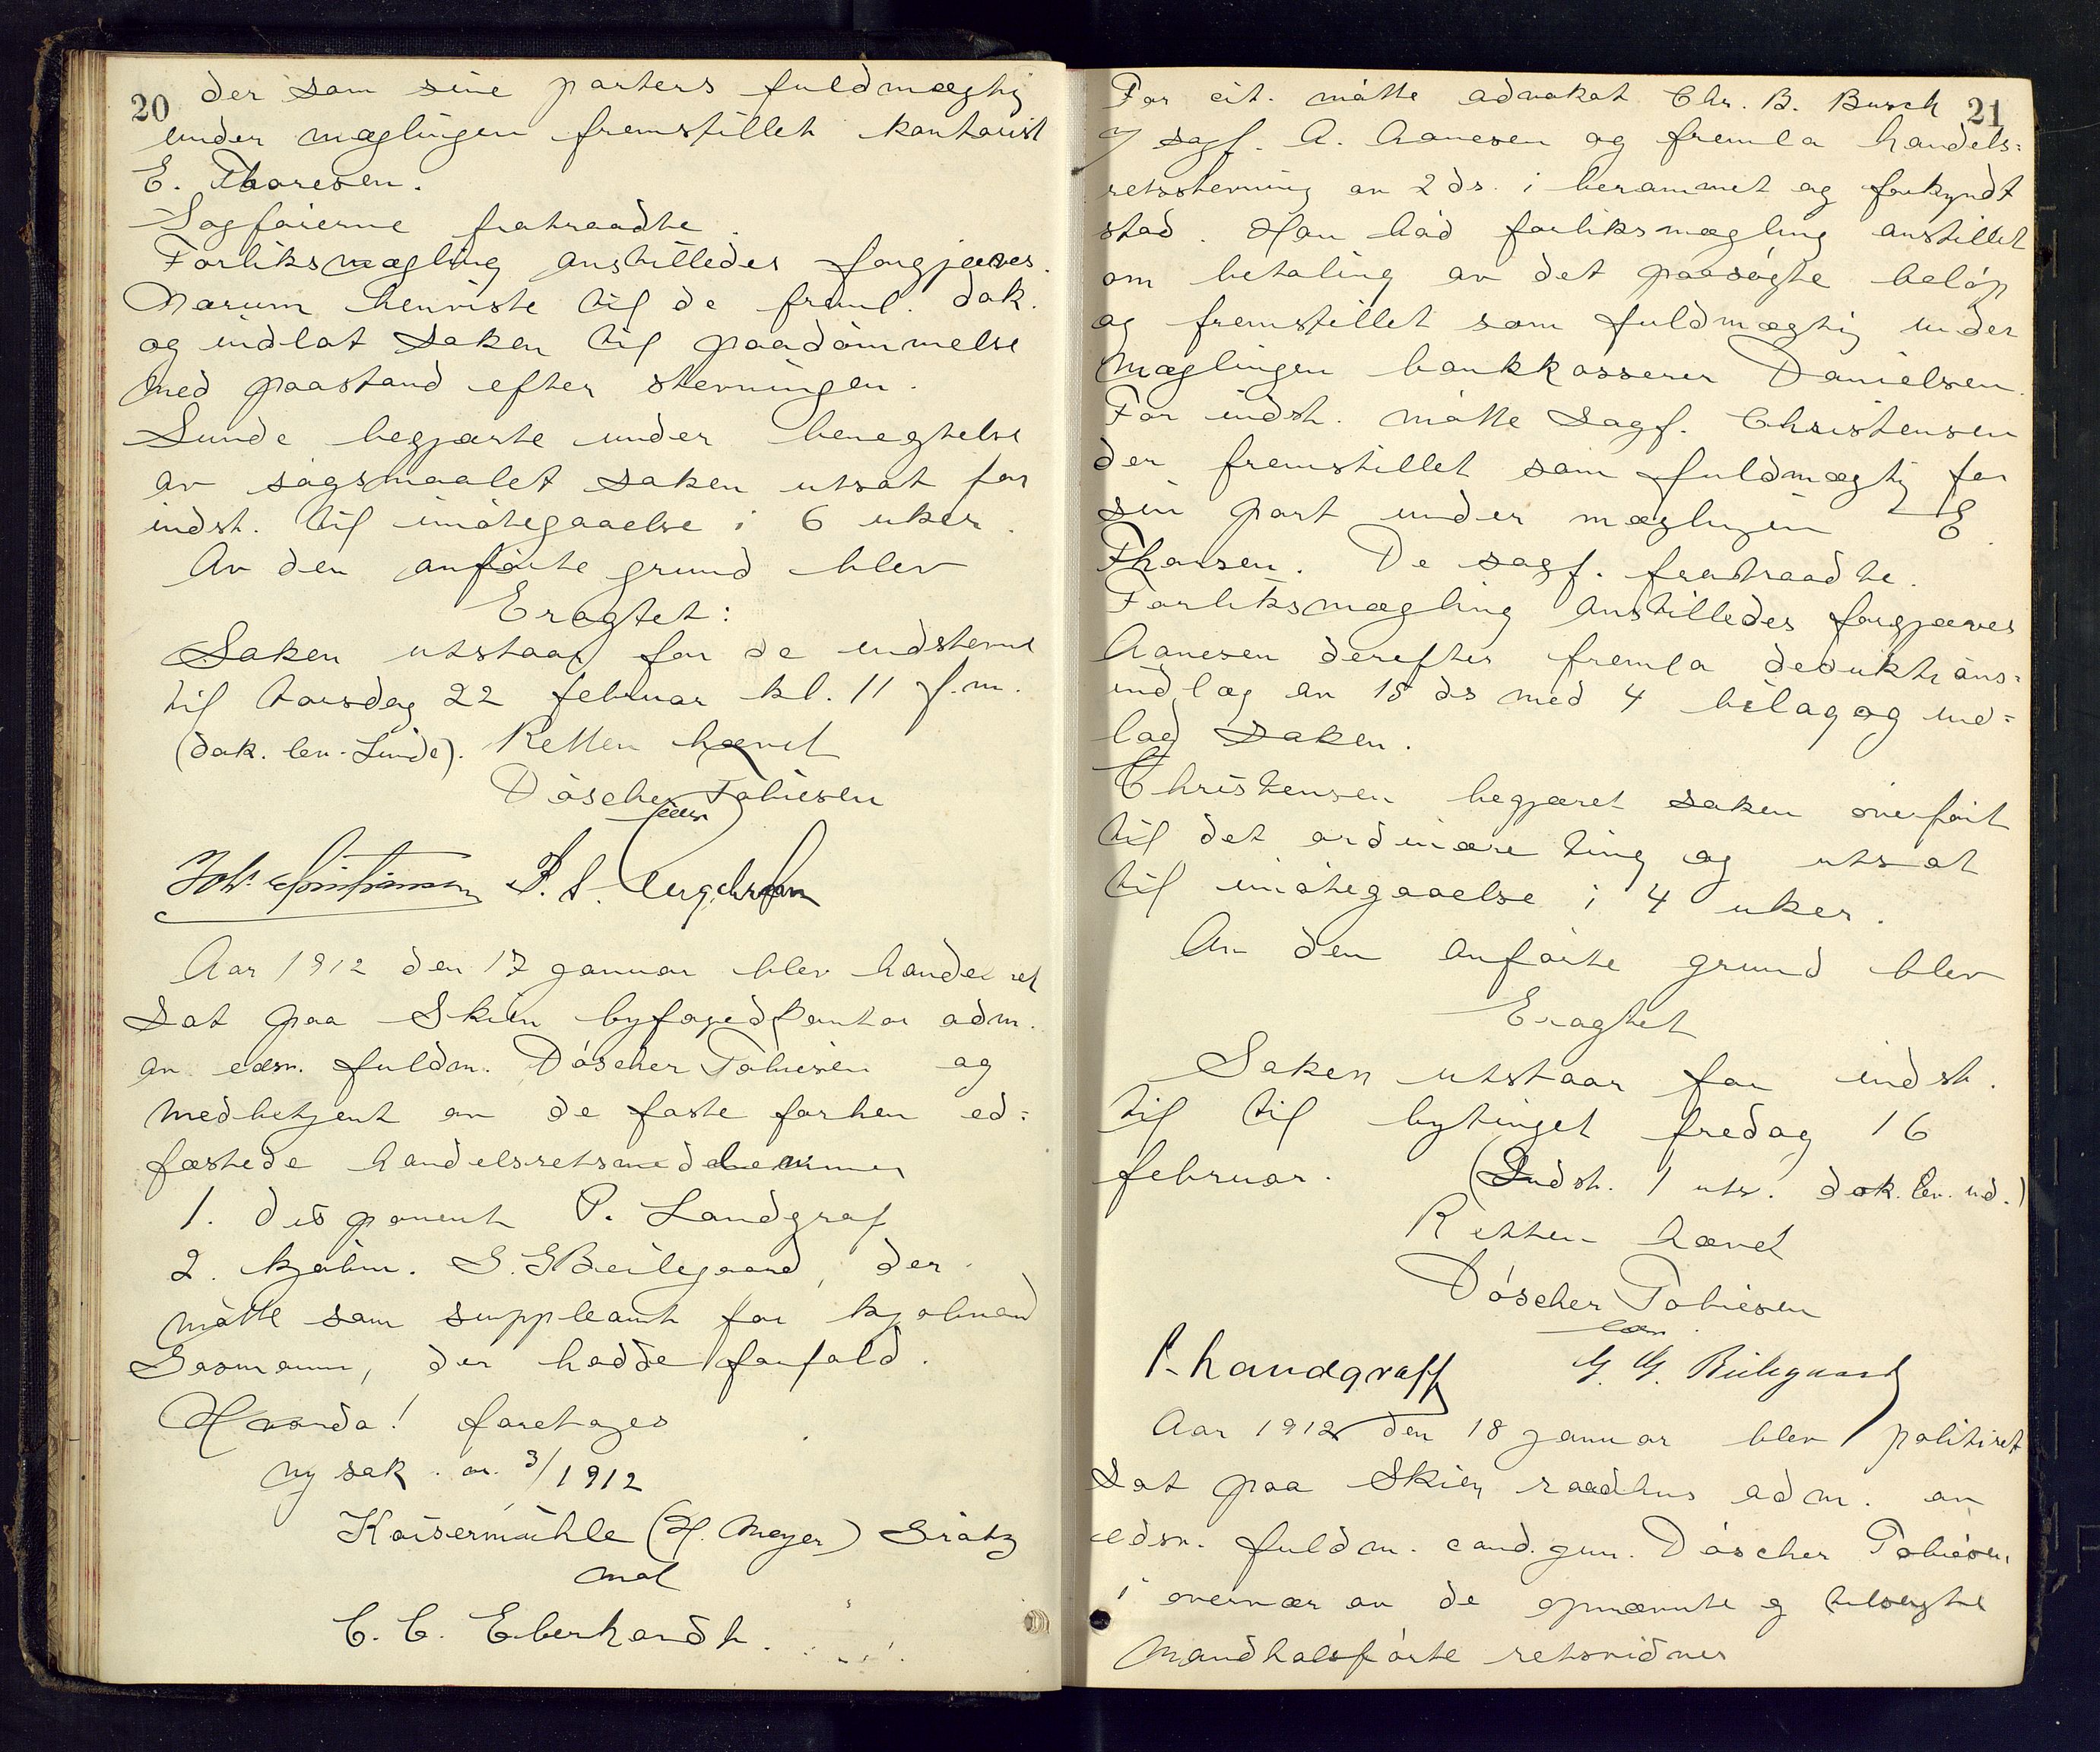 20
der som sine parters fuldmægtig
under mæglingen fremstillet kontorist
E. Thoresen.
Sagførerne fratraadte.
Forliksmægling anstilledes forgjæves.
Marum henviste til de freml. dok.
og indlot saken til paadømmelse
med paastand efter stevningen.
Lunde begjærte under benegtelse
av søgsmaalet saken utsat for
indst. til imøtegaaelse i 6 uker.
Av den anførte grund blev
Eragtet:
Saken utstaar for de indstevnte
til torsdag 22 februar kl. 11 f.m.
(dok. lev. Lunde). Retten hævet
Döscher Tobiesen
edsv
Joh. Christiansen P. S.
Aar 1912 den 17 januar blev handelsret
sat paa Skien byfogedkontor adm.
av edsv. fuldm. Döscher Tobiesen og
medbetjent av de faste forhen ed=
fæstede handelsretsmedlemmer
1. disponent P. Landgraf
2. kjøbm. G. G. Beilegaard, der
møtte som suppleant for kjøbmand
Gasmann, der hadde forfald.
Hvorda! foretoges
ny sak nr. 3/1912
Kaisermühle (H. Meyer) Grätz
mot
C. C. Eberhardt.
21
For cit. møtte advokat Chr. B. Busch
v/ sagf. A. Aanesen og fremla handels=
retsstevning av 2 ds. i berammet og forkyndt
stad. Han bad forliksmægling anstillet
om betaling av det paasøgte beløp
og fremstillet som fuldmægtig under
mæglingen bankkasserer Danielsen.
For indst. møtte sagf. Christensen
der fremstillet som fuldmægtig for
sin part under mæglingen E.
Thorsen. De sagf. fratraadte.
Forliksmægling anstilledes forgjæves
Aanesen derefter fremla deduktions=
indlæg av 15 ds med 4 bilag og ind=
lod saken.
Christensen begjæret saken overført
til det ordinære ting og utsat
til imøtegaaelse i 4 uker.
Av den anførte grund blev
Eragtet
Saken utstaar for indst.
til til bytinget fredag 16
februar. (Indst. 1 uts. dok. lev. ud.)
Retten hævet
Döscher Tobiesen
edsv.
P. Landgraff G. G. Beilegaard
Aar 1912 den 18 januar blev politiret
sat paa Skien raadhus adm. av
edsv. fuldm. cand. jur. Döscher Tobiesen
i overvær av de opnævnte og tilsagte
mandtalsførte retsvidner